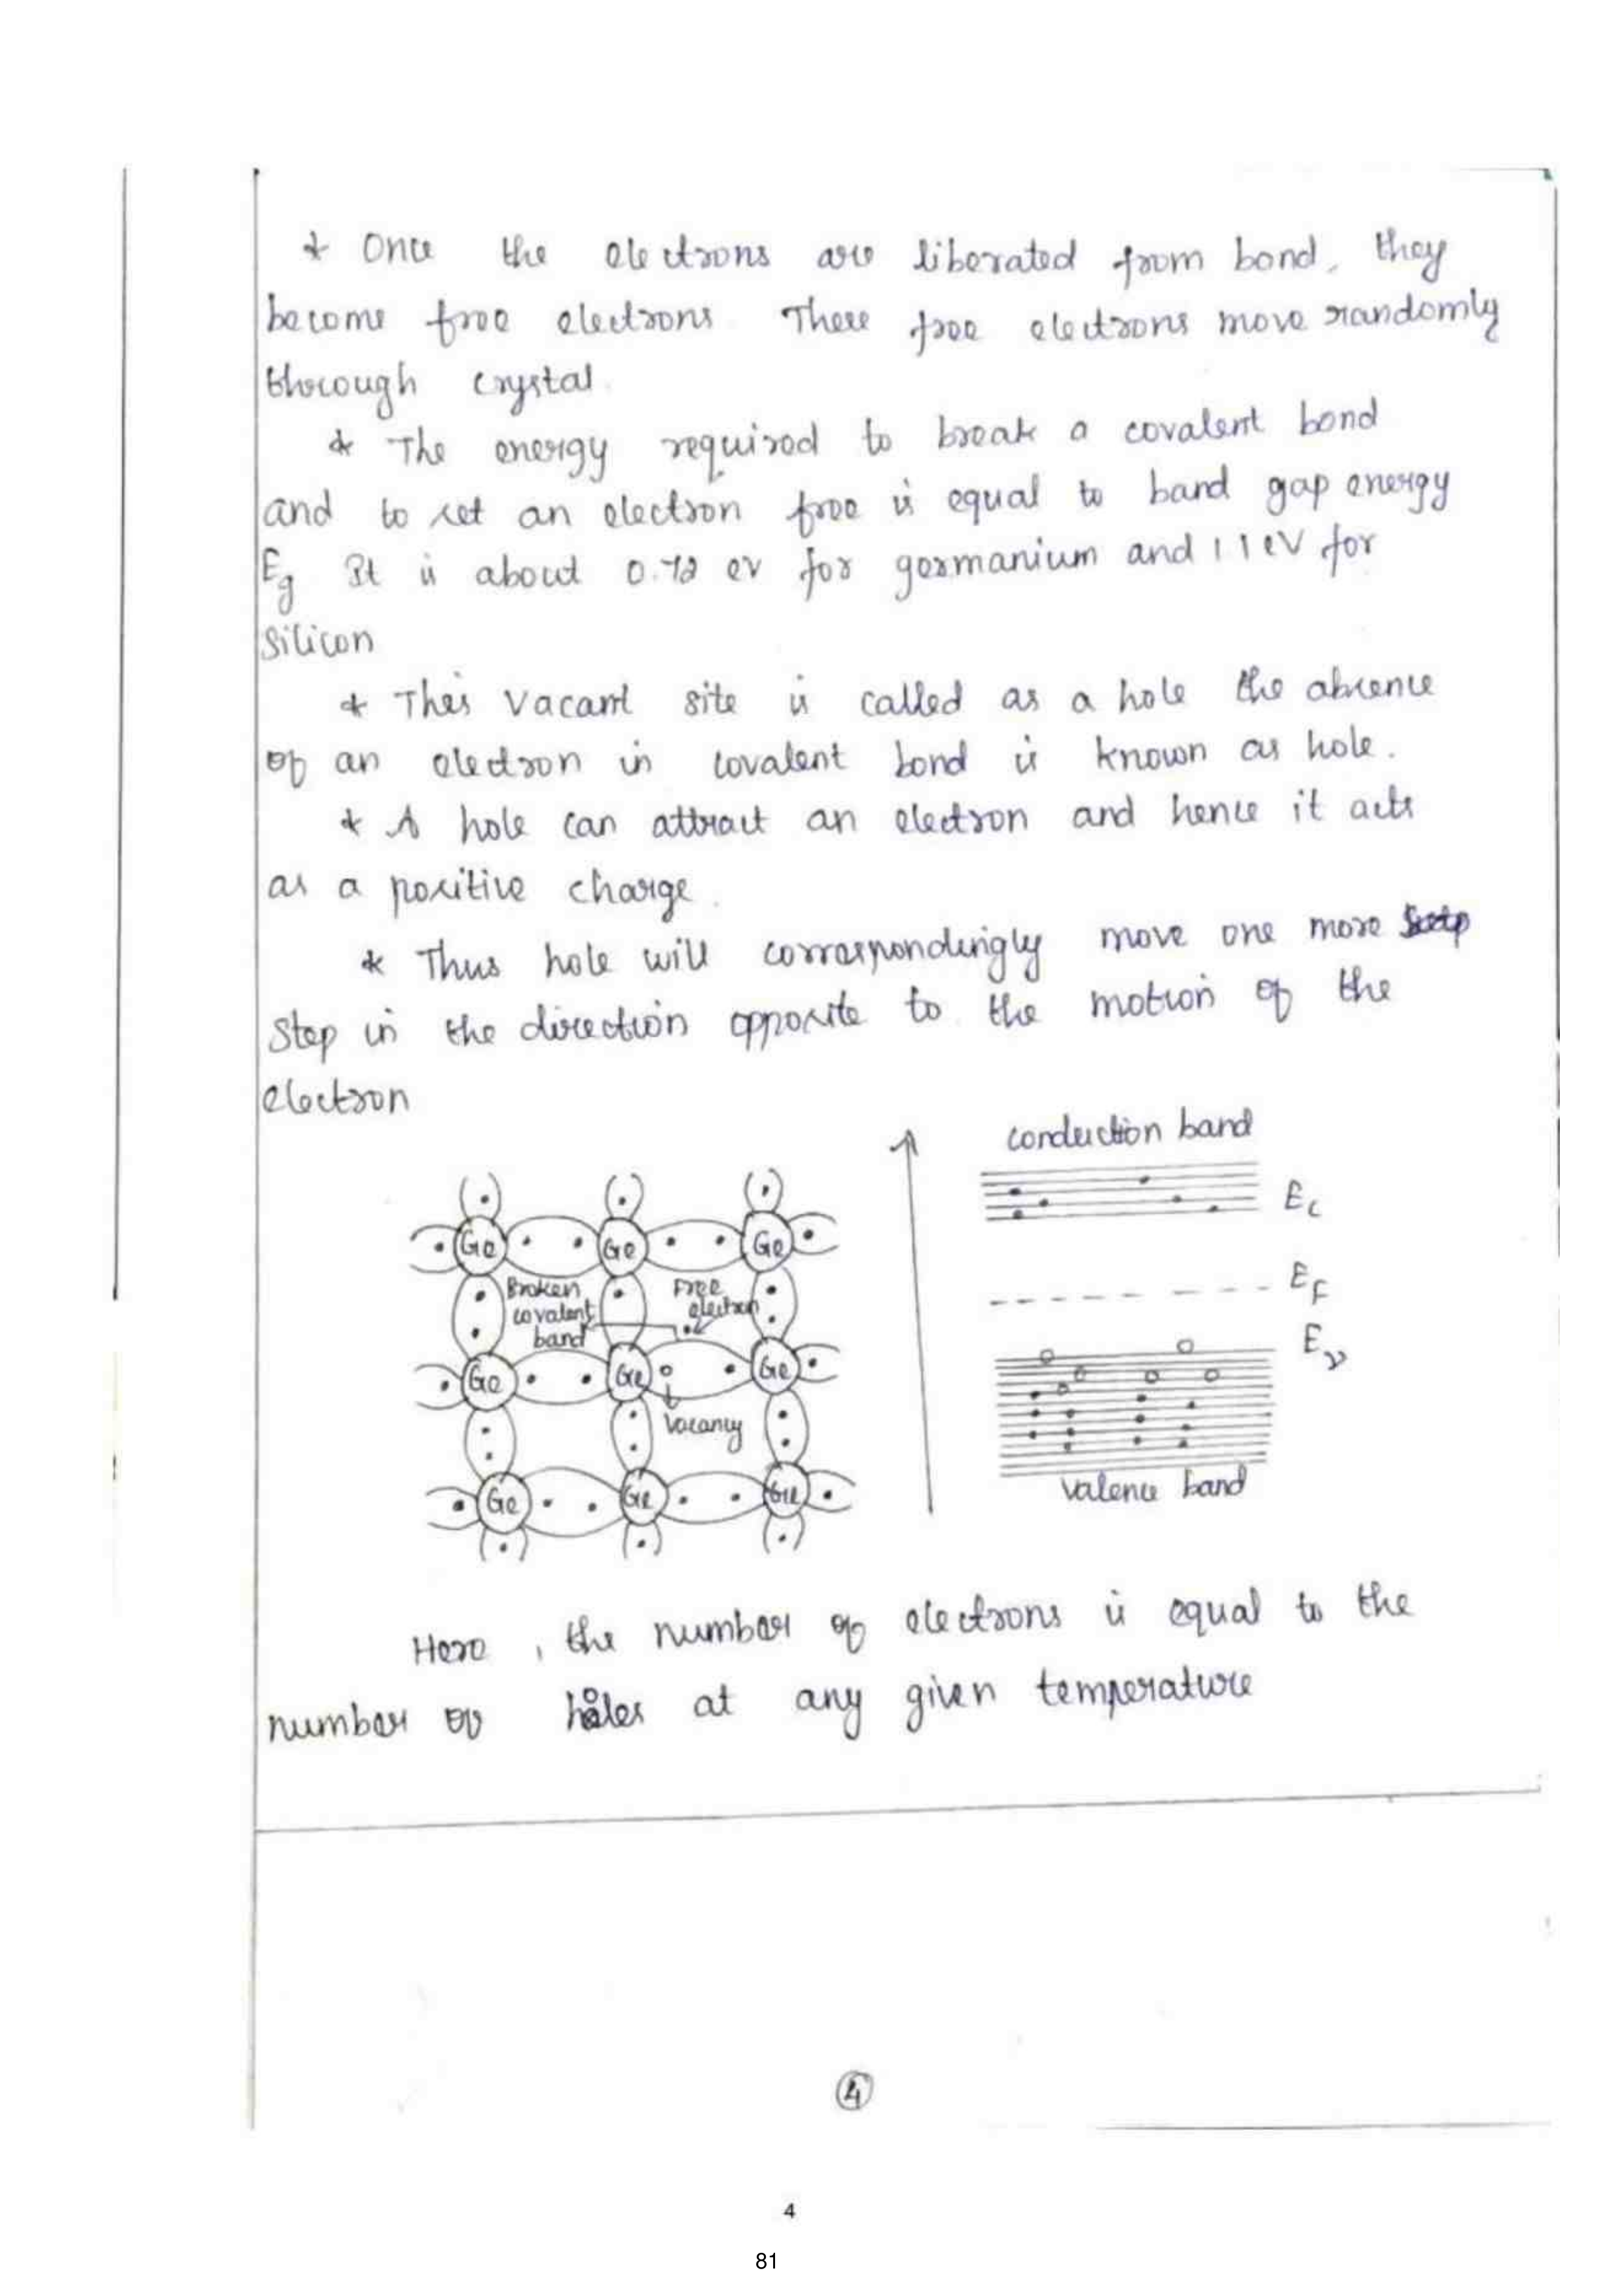 * Once the electrons are liberated from bond, they
become free electrons. These free electrons move randomly
through crystal.
* The energy required to break a covalent bond
and to set an electron free is equal to band gap energy
Eg It is about 0.72 ev for germanium and 1.1 eV for
Silicon
* This vacant site is called as a hole the absence
of an electron in covalent bond is known as hole.
* A hole can attract an electron and hence it acts
as a positive charge.
* Thus hole will correspondingly move one more
Step in the direction opposite to the motion of the
electron
conduction band
Ec
EF
Ev
Valence band
Ge Ge Ge
Broken
covalent
band
Free
electron
Ge Ge Ge
Vacancy
Ge Ge Ge
Here, the number of electrons is equal to the
number of holes at any given temperature
4
4
81